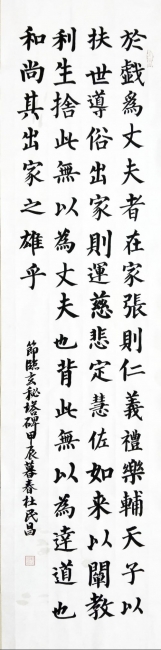 於戲為丈夫者在家張則仁義禮樂輔天子以
扶世導俗出家則運慈悲定慧佐如来以闡教
利生捨此無以為丈夫也背此無以為達道也
和尚其出家之雄乎
節臨玄秘塔碑甲辰暮春杜民昌